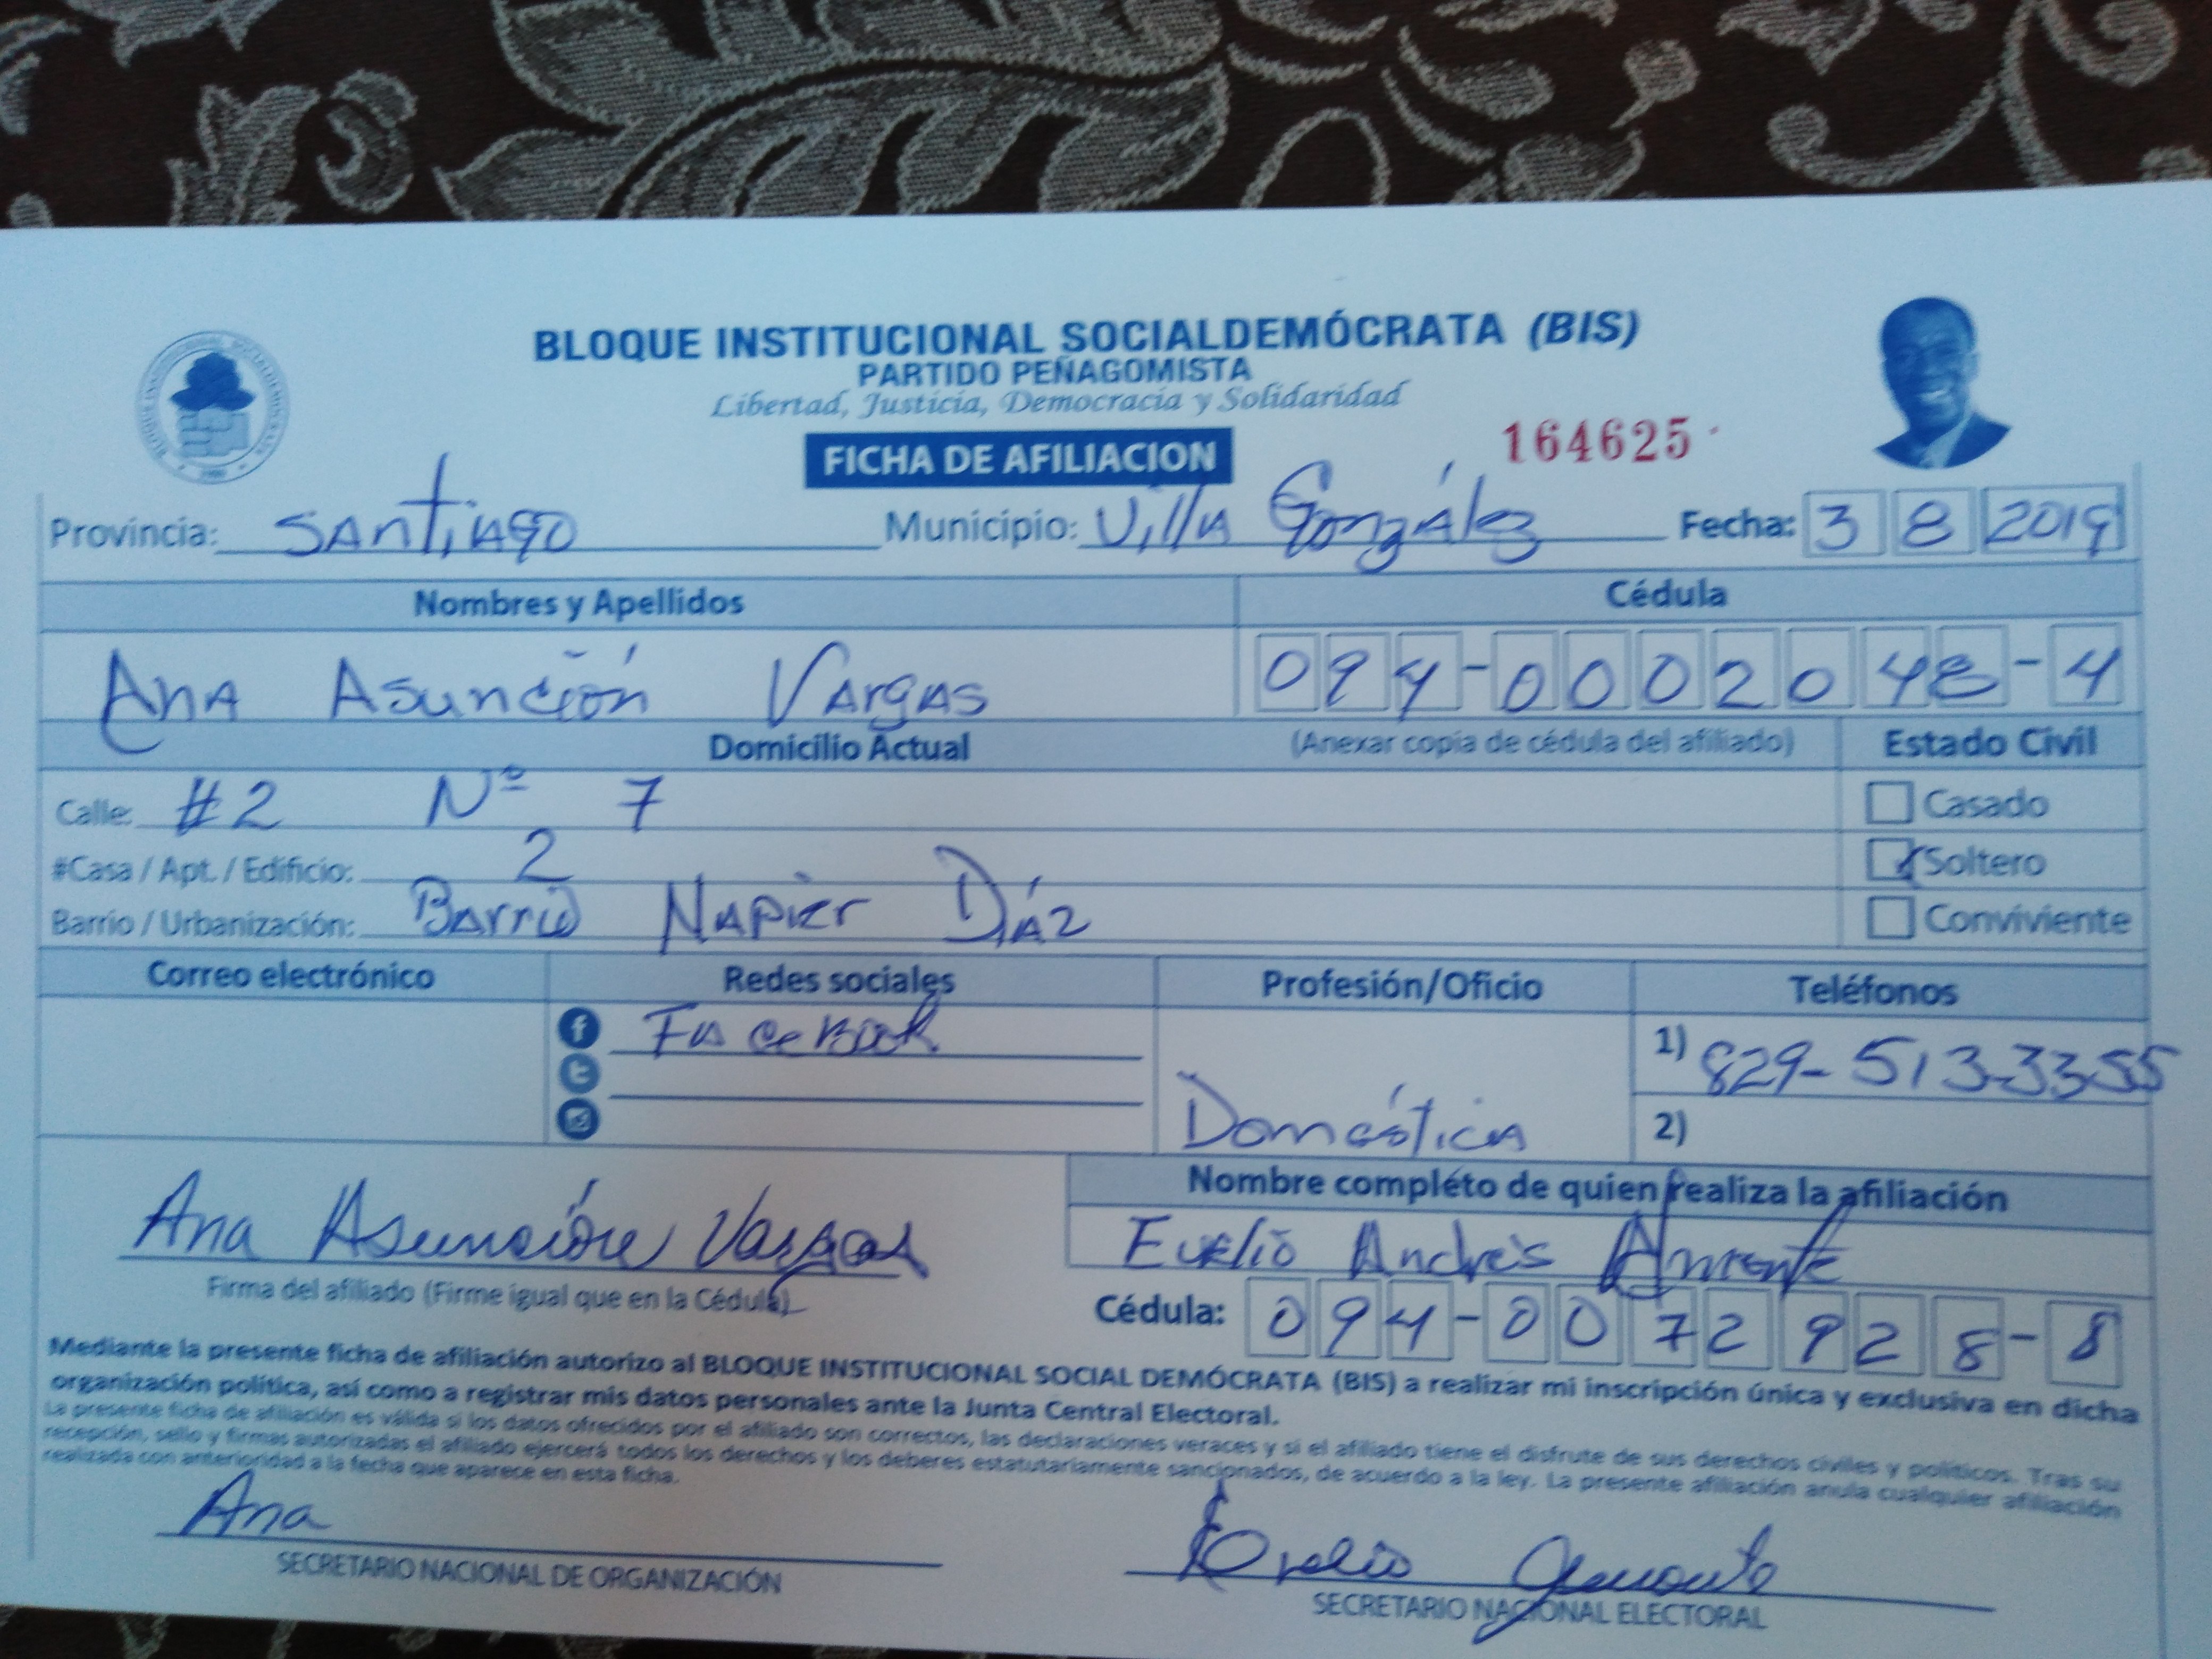 BLOQUE INSTITUCIONAL SOCIALDEMÓCRATA (BIS)
PARTIDO PEÑAGOMISTA
Libertad, Justicia, Democracia y Solidaridad
FICHA DE AFILIACION 164625
Provincia: Santiago Municipio: Villa González Fecha: 3 8 2019
Nombres y Apellidos Cédula
Ana Asunción Vargas 094-0002048-4
Domicilio Actual (Anexar copia de cédula del afiliado) Estado Civil
Calle: #2 Nº 7 Casado
#Casa / Apt. / Edificio: 2 Soltero
Barrio / Urbanización: Barrio Napier Díaz Conviviente
Correo electrónico Redes sociales Profesión/Oficio Teléfonos
Facebook 1) 829-513-3355
Doméstica 2)
Nombre completo de quien realiza la afiliación
Ana Asunción Vargas Evelio Andrés
Firma del afiliado (Firme igual que en la Cédula)
Cédula: 094-0072928-8
Mediante la presente ficha de afiliación autorizo al BLOQUE INSTITUCIONAL SOCIAL DEMÓCRATA (BIS) a realizar mi inscripción única y exclusiva en dicha
organización política, así como a registrar mis datos personales ante la Junta Central Electoral.
La presente ficha de afiliación es válida si los datos ofrecidos por el afiliado son correctos, las declaraciones veraces y si el afiliado tiene el disfrute de sus derechos civiles y políticos. Tras su
recepción, sello y firmas autorizadas el afiliado ejercerá todos los derechos y los deberes estatutariamente sancionados, de acuerdo a la ley. La presente afiliación anula cualquier afiliación
realizada con anterioridad a la fecha que aparece en esta ficha.
Ana Evelio
SECRETARIO NACIONAL DE ORGANIZACIÓN SECRETARIO NACIONAL ELECTORAL